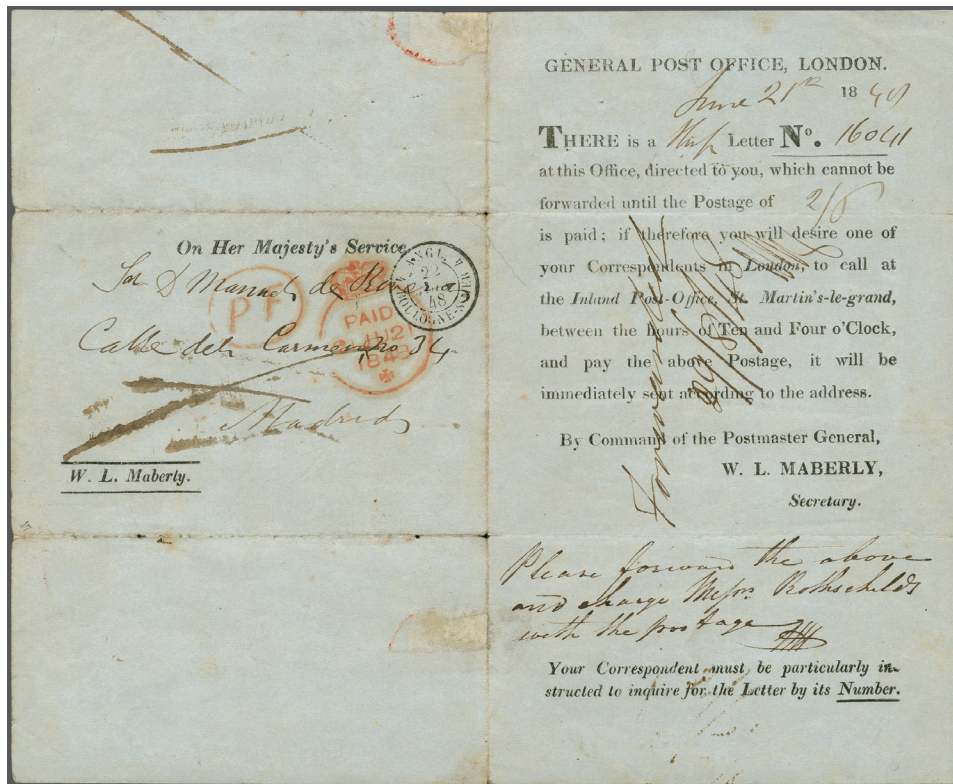 On Her Majesty's Service
Sor D Manuel de
Calle del Carmen No 34
Madrid
W. L. Maberly.
PF
PAID
21 JU 21
1848
ANGL.
22
48
BOULOGNE-S-MER
GENERAL POST OFFICE, LONDON.
June 21st 1848
THERE is a Letter No. 16041
at this Office, directed to you, which cannot be
forwarded until the Postage of 2/8
is paid; if therefore you will desire one of
your Correspondents in London, to call at
the Inland Post-Office, St. Martin's-le-grand,
between the hours of Ten and Four o'Clock,
and pay the above Postage, it will be
immediately sent according to the address.
By Command of the Postmaster General,
W. L. MABERLY,
Secretary.
Forwarded
Please forward the above
and charge Messrs Rothschilds
with the postage
Your Correspondent must be particularly in-
structed to inquire for the Letter by its Number.